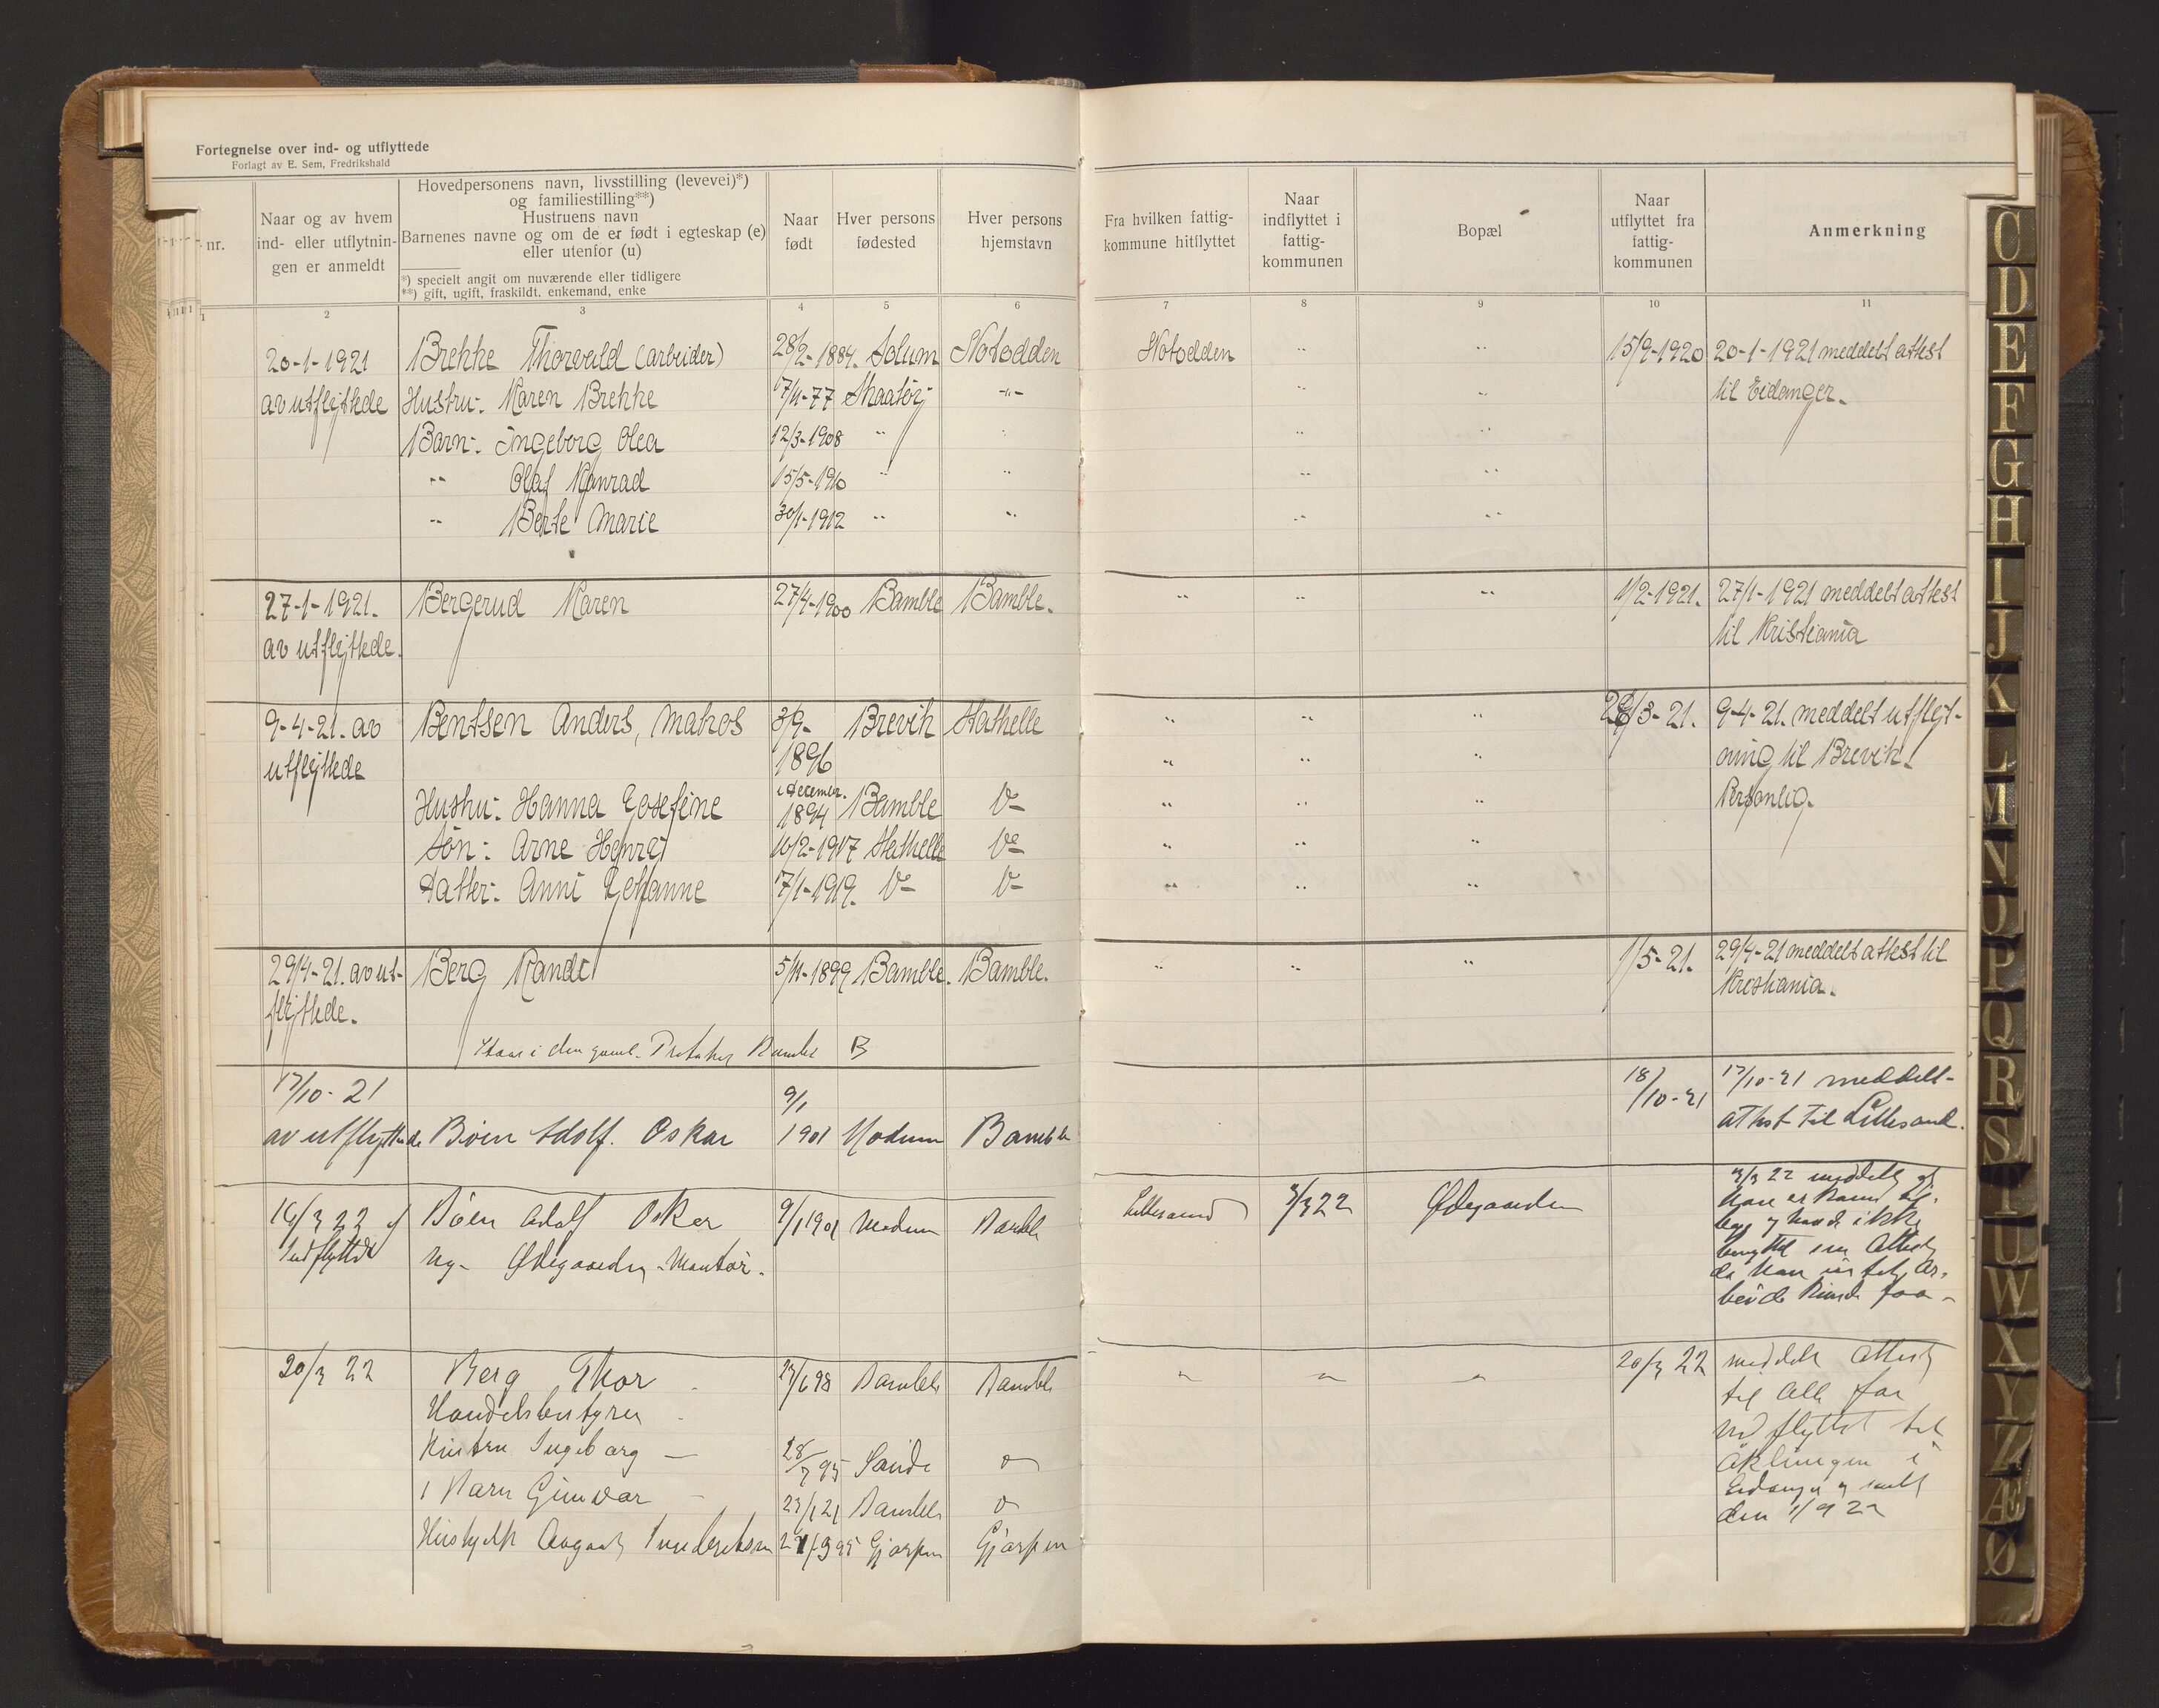 Fortegnelse over ind- og utflyttede
Forlagt av E. Sem, Fredrikshald
nr.
Naar og av hvem
ind- eller utflytnin-
gen er anmeldt
Hovedpersonens navn, livsstilling (levevei)*)
og familiestilling**)
Hustruens navn
Barnenes navne og om de er født i egteskap (e)
eller utenfor (u)
*) specielt angit om nuværende eller tidligere
**) gift, ugift, fraskildt, enkemand, enke
Naar
født
Hver persons
fødested
Hver persons
hjemstavn
Fra hvilken fattig-
kommune hitflyttet
Naar
indflyttet i
fattig-
kommunen
Bopæl
Naar
utflyttet fra
fattig-
kommunen
Anmerkning
1 2 3 4 5 6 7 8 9 10 11
20-1-1921 Brekke Thorvald (arbeider) 28/2-1884. Solum Notodden Notodden " " 15/9-1920 20-1-1921 meddelt attest
av utflyttede Hustru: Maren Brekke 17/11-77 Skaatøy " " " til Eidanger.
Barn: Ingeborg Olea 12/3-1908 " " " "
" Olaf Konrad 15/5-1910 " " " "
" Berte Marie 30/1-1912 " " " "
27-1-1921. Bergerud Karen 27/4-1900 Bamble Bamble. " " " 1/2-1921. 27/1-1921 meddelt attest
av utflyttede. til Kristiania
9-4-21. av Bentsen Anders, Matros 3/9- Brevik Stathelle " " " /3-21. 9-4-21. meddelt utflyt-
utflyttede 1896 " " " ning til Brevik.
Hustru: Hanna Josefine i decemer. 1894 Bamble Do " " " Personlig.
Søn: Arne Henry 10/2-1917 Stathelle Do " " "
Datter: Anni Johanne 17/1-1919. Do Do " " "
29/4-21. av ut- Berg Randi 5/11-1899 Bamble. Bamble. " " " 1/5-21. 29/4-21 meddelt attest til
flyttede. Kristiania.
Staar i den gaml. B
17/10-21 9/1 18/10-21 17/10-21 meddelt-
av utflyttede Böen Adolf. Oskar 1901 Modum Bamble attest til Lillesand.
16/3 22 af Böen Adolf Oskar 9/1 1901 Modum Bamble Lillesand 3/3 22 Ødegaarden 3/3 22 meddelt
Indflyttede Ug- Ødegaarden - Montör. han er kommet til-
bage og havde ikke
benyttet sin Attest
da han intet Ar-
beide kunde faa-
20/3 22 Berg Thor /6 98 Bamble Bamble " " " 20/3 22 meddelt Attest
Handelsbestyrer til Alle for
Hustru Ingeborg 28/7 95 Sande Do Utflyttet til
1 Barn Gunvor 23/1 21 Bamble Do i
Hushjelp 95 Gjerpen Gjerpen Eidanger
den 1/9 22
C
D
E
F
G
H
I
J
K
L
M
N
O
P
Q
R
S
T
U
W
X
Y
Z
Æ
Ø